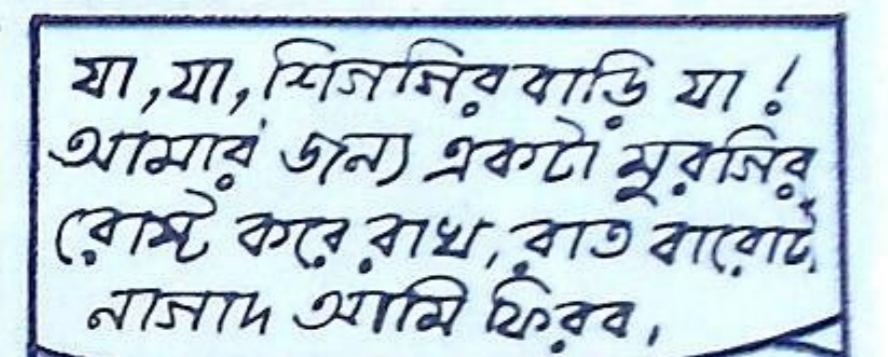 যা, যা, শিগগির বাড়ি যা!
আমার জন্য একটা মুরগির
রোস্ট করে রাখ, রাত বারোটা
নাগাদ আমি ফিরব,